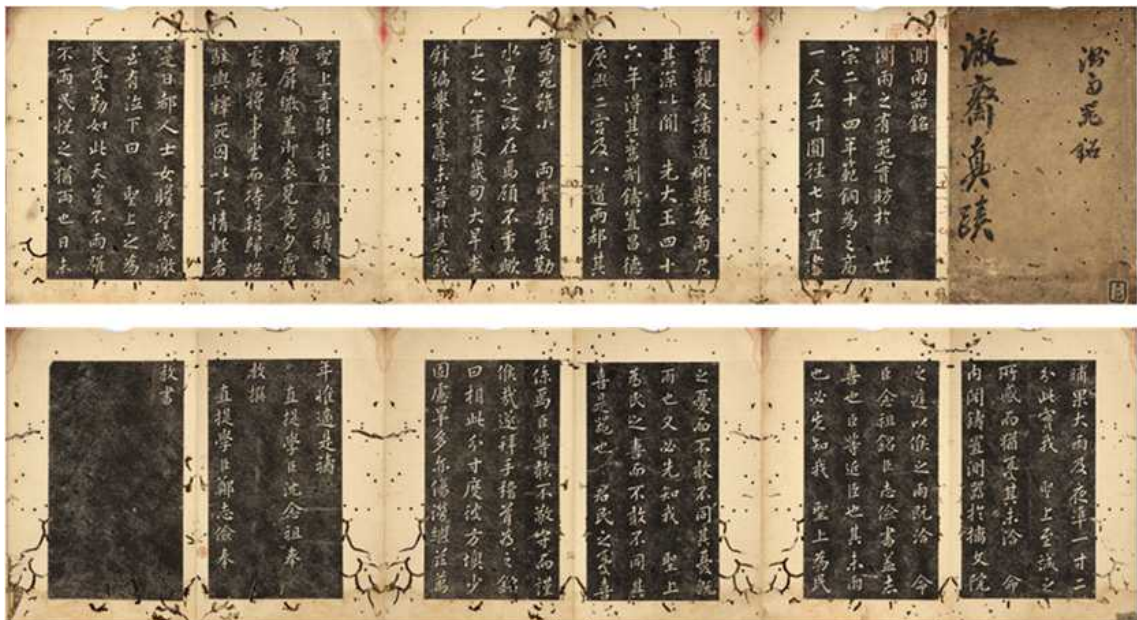 測雨器銘
澈齋真蹟
測雨器銘
測雨之有器實昉於 世
宗二十四年範銅為之高
一尺五寸圓徑七寸置書
雲觀及諸道郡縣每雨尺
其深以聞 先大王四十
六年得其舊制鑄置昌德
慶熙二宮及八道兩都其
為器雖小 兩聖朝憂勤
水旱之政在焉顧不重歟
上之六年夏畿甸大旱圭
璧徧舉靈應未普於是我
聖上責躬求言 親禱雩
壇屏繖盖御衮冕竟夕露
處既將事坐而待朝歸路
駐輿釋死囚以下情輕者
是日都人士女瞻望感激
至有泣下曰 聖上之為
民憂勤如此天豈不雨雖
不雨民悅之猶雨也日未
晡果大雨及夜準一寸二
分此實我 聖上至誠之
所感而猶慮其未洽 命
內閣鑄置測器於摛文院
之庭以候之雨既洽 命
臣念祖銘臣志儉書蓋志
喜也臣等近臣也其未雨
也必先知我 聖上為民
之憂而不敢不同其憂既
雨也又必先知我 聖上
為民之喜而不敢不同其
喜是器也 君民之憂喜
係焉臣等敢不敬守而謹
候哉遂拜手稽首為之銘
曰相此分寸度彼方壤少
固慮旱多亦傷潦繼茲萬
年惟適是禱
直提學臣沈念祖奉
教撰
直提學臣鄭志儉奉
教書